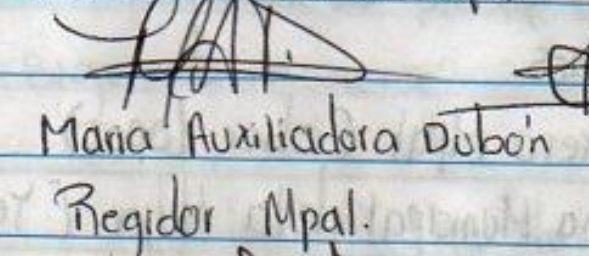 Maria Auxiliadora Dubón
Regidor Mpal.